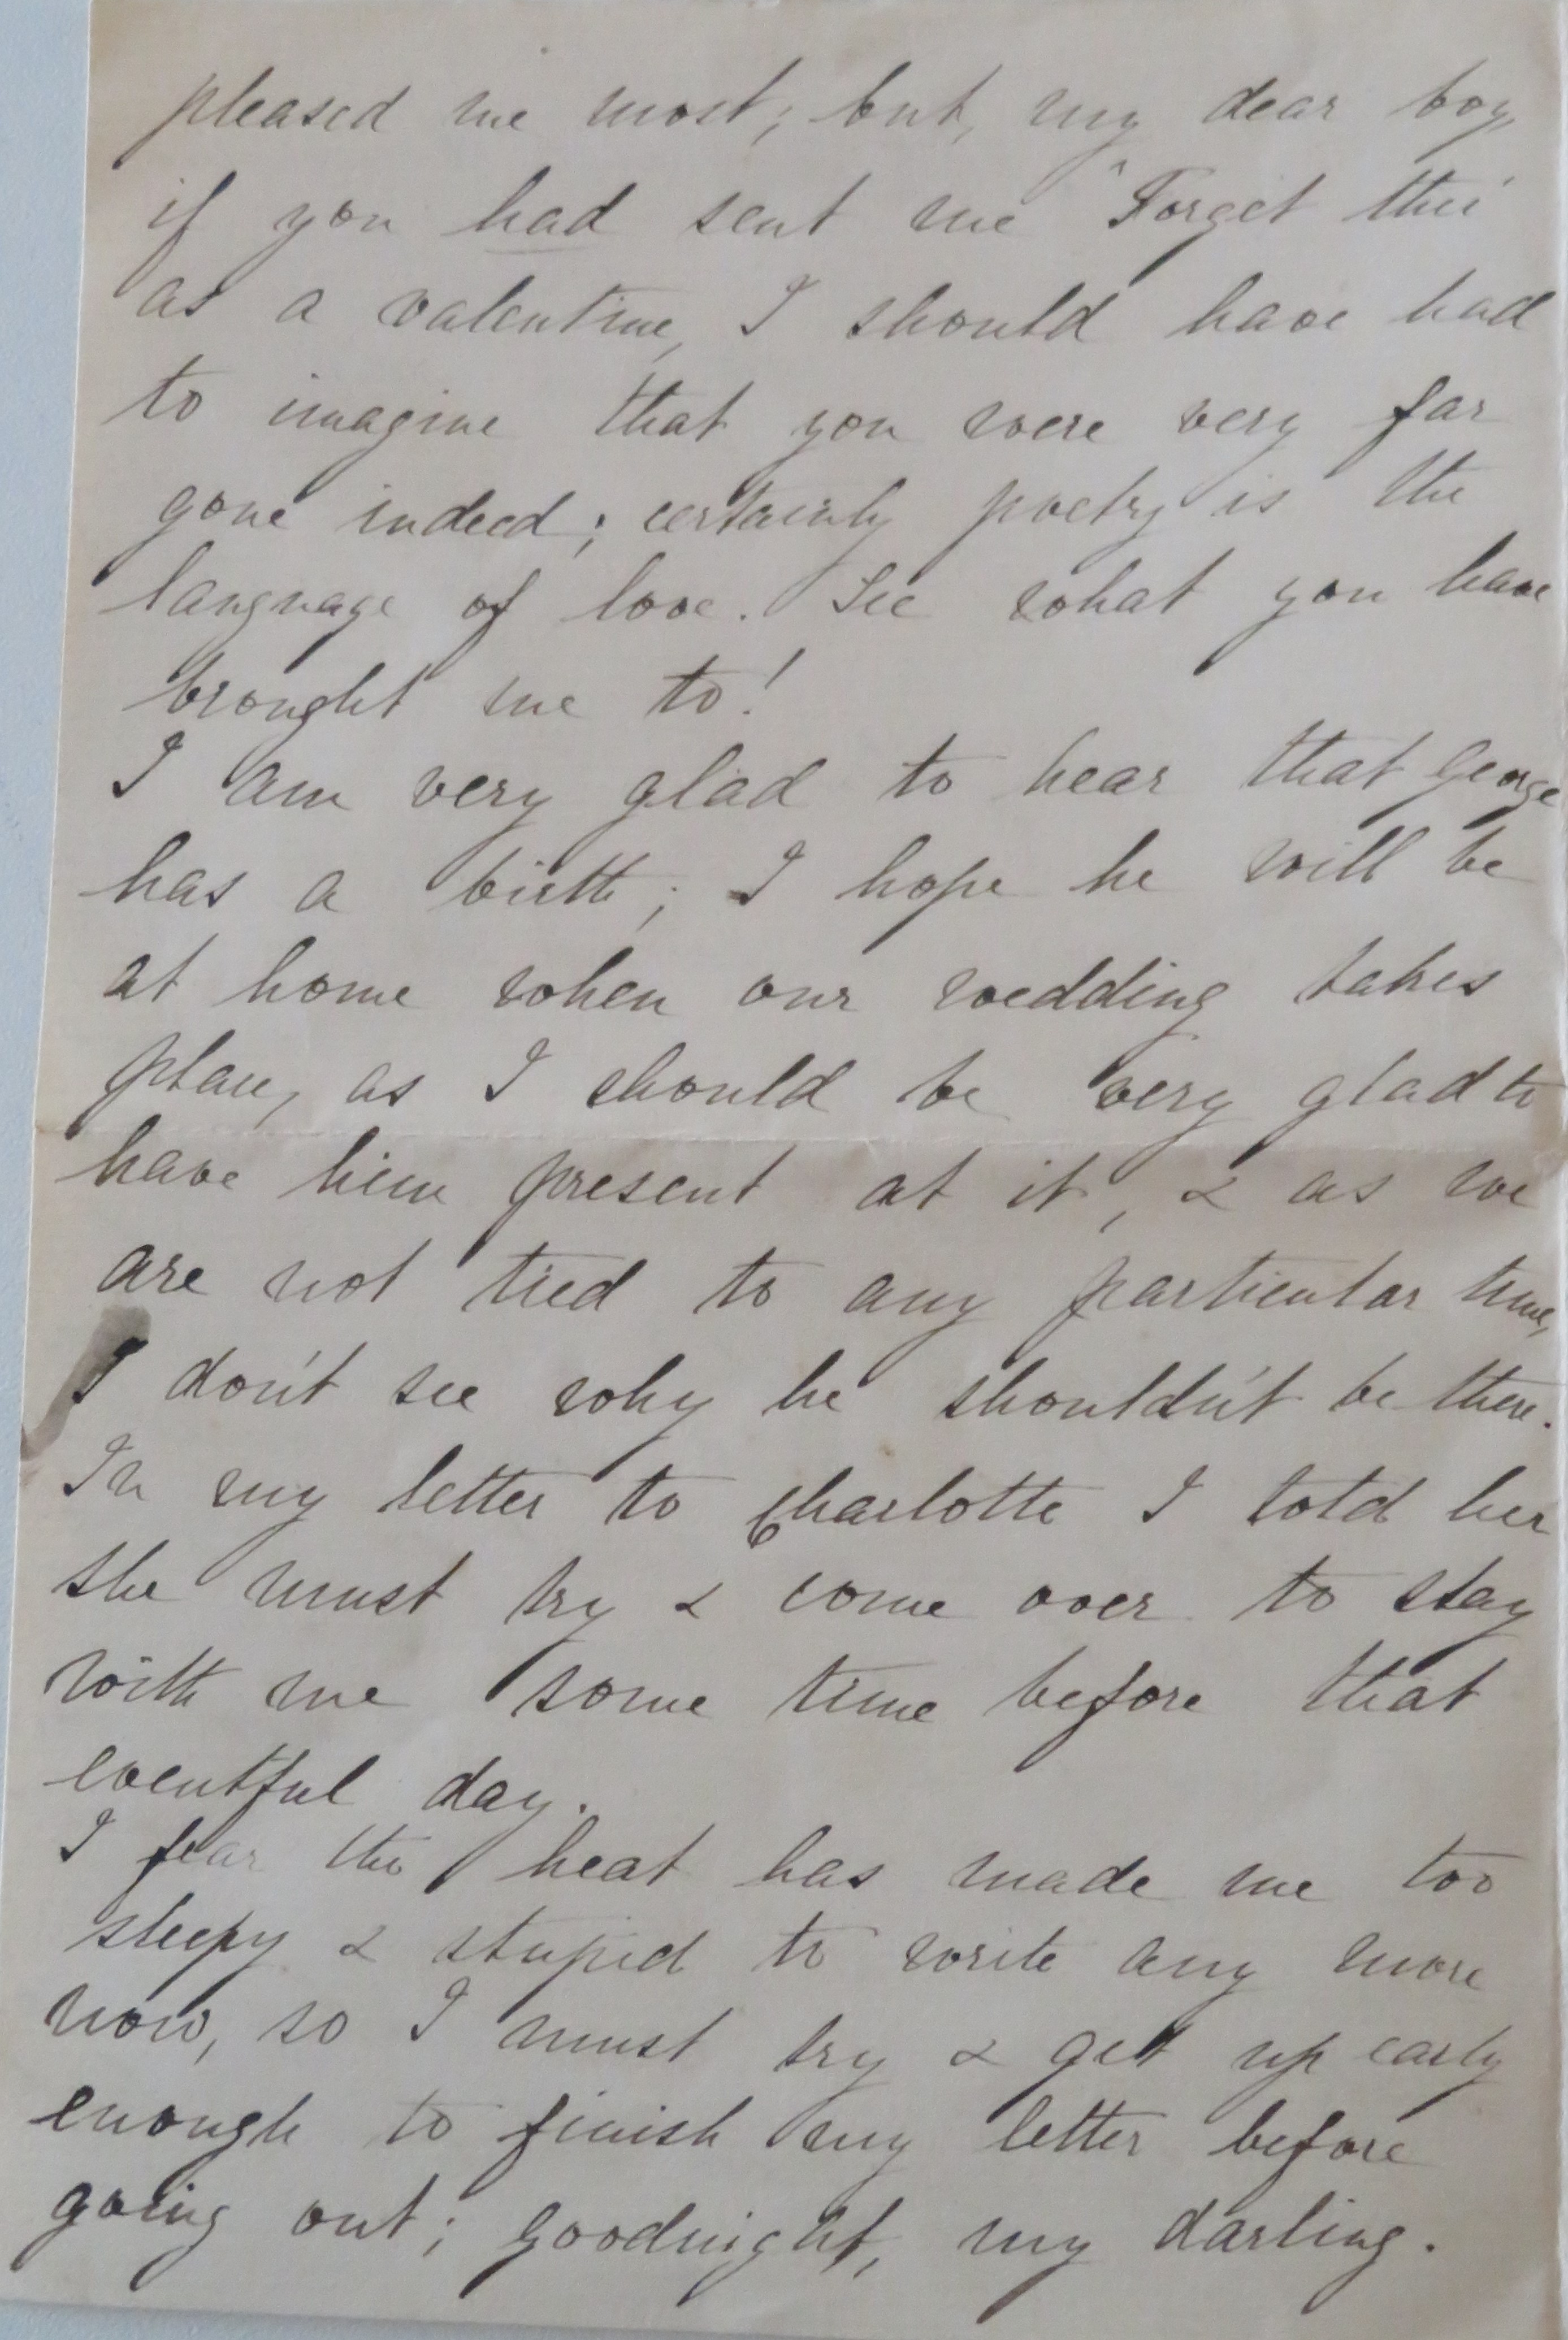 pleased me most; but, my dear boy,
if you had sent me "Forget thee"
as a valentine, I should have had
to imagine that you were very far
gone indeed; certainly poetry is the
language of love. See what you have
brought me to!
I am very glad to hear that George
has a birth; I hope he will be
at home when our wedding takes
place, as I should be very glad to
have him present at it, & as we
are not tied to any particular time,
I don't see why he shouldn't be there.
In my letter to Charlotte I told her
she must try & come over to stay
with me some time before that
eventful day.
I fear the heat has made me too
sleepy & stupid to write any more
now, so I must try & get up early
enough to finish my letter before
going out; goodnight, my darling.